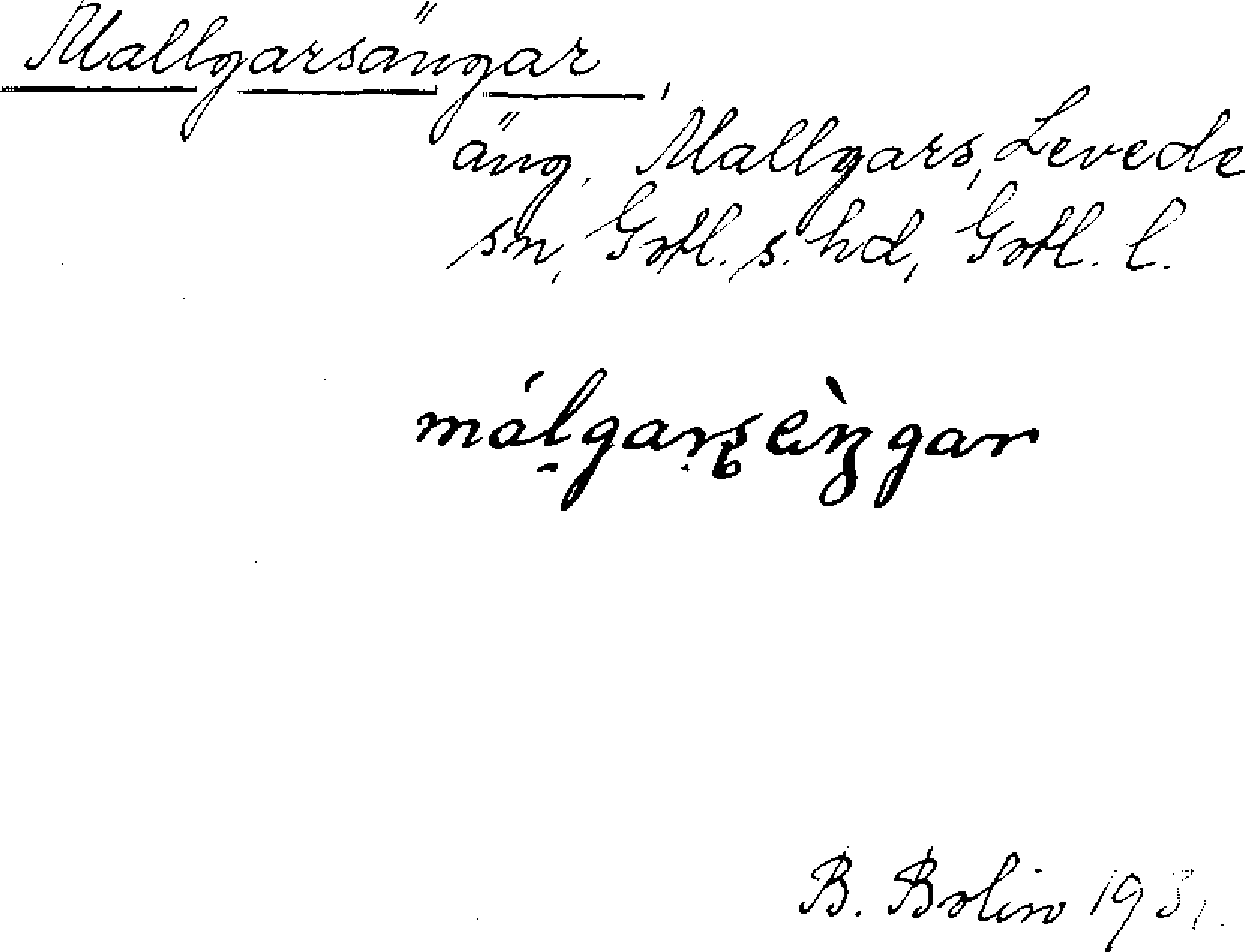 Mallgarsängar,
äng, Mallgars, Levede
sn, Gotl. s. hd, Gotl. l.
B. Bolin 1931.